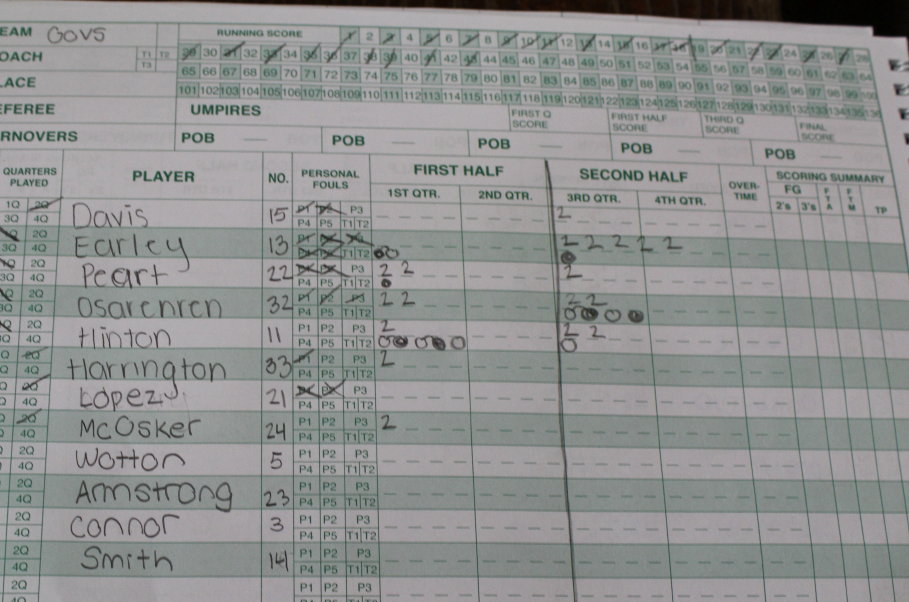 TEAM GOVS RUNNING SCORE 1 2 3 4 5 6 7 8 9 10 11 12 13 14 15 16 17 18 19 20 21 22 23 24 25 26 27 28
COACH T1 T2 T3 29 30 31 32 33 34 35 36 37 38 39 40 41 42 43 44 45 46 47 48 49 50 51 52 53 54 55 56 57 58 59 60 61 62 63 64
65 66 67 68 69 70 71 72 73 74 75 76 77 78 79 80 81 82 83 84 85 86 87 88 89 90 91 92 93 94 95 96 97 98 99 100
LACE 101 102 103 104 105 106 107 108 109 110 111 112 113 114 115 116 117 118 119 120 121 122 123 124 125 126 127 128 129 130 131 132 133 134 135 136
EFEREE UMPIRES FIRST Q SCORE FIRST HALF SCORE THIRD Q SCORE FINAL SCORE
RNOVERS POB POB POB POB POB
QUARTERS PLAYED PLAYER NO. PERSONAL FOULS FIRST HALF SECOND HALF OVER-TIME SCORING SUMMARY
1ST QTR. 2ND QTR. 3RD QTR. 4TH QTR. FG 2's 3's FTA FTM TP
1Q 2Q Davis 15 P1 P2 P3 2
3Q 4Q P4 P5 T1 T2
2Q Earley 13 P1 2 2 2 2 2
3Q 4Q T1 T2 0 0 0
2Q Peart 22 P3 2 2 2
3Q 4Q P4 P5 T1 T2 0
2Q Osarenren 32 P1 P2 P3 2 2 2 2
4Q P4 P5 T1 T2 0 0 0 0
2Q Hinton 11 P1 P2 P3 2 2 2
4Q P4 P5 T1 T2 0 0 0 0 0 0
2Q Harrington 33 P1 P2 P3 2
4Q P4 P5 T1 T2
2Q Lopez 21 P3
4Q P4 P5 T1 T2
2Q McOsker 24 P1 P2 P3 2
4Q P4 P5 T1 T2
2Q Wotton 5 P1 P2 P3
4Q P4 P5 T1 T2
2Q Armstrong 23 P1 P2 P3
4Q P4 P5 T1 T2
2Q Connor 3 P1 P2 P3
4Q P4 P5 T1 T2
2Q Smith 14 P1 P2 P3
4Q P4 P5 T1 T2
2Q P1 P2 P3
4Q P4 P5 T1 T2